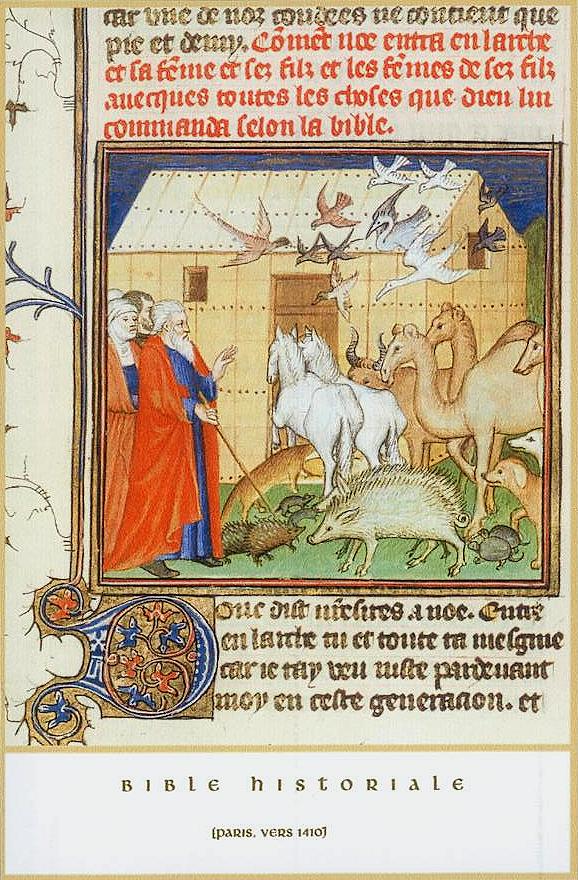 car vne de noz coudees ne contient que
pie et demy. Cōmēt noe entra en larche
et sa fēme et ses filz et les fēmes de ses filz
auecques toutes les choses que dieu lui
commanda selon la bible.
Donc dist nr̄esires a noe. Entre
en larche tu et toute ta mesgnie
car ie tay veu iuste pardeuant
moy en ceste generacion. et
BIBLE hISTORIALE
[PARIS, VERS 1410]